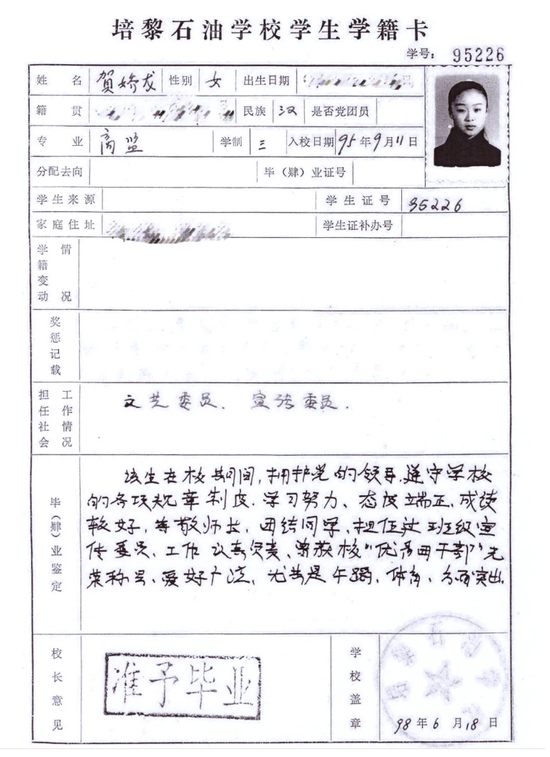 培黎石油学校学生学籍卡
学号: 95226
姓名 贺娇龙 性别 女 出生日期
籍贯 民族 汉 是否党团员
专业 高监 学制 三 入校日期 95年9月11日
分配去向 毕(肄)业证号
学生来源 学生证号 95226
家庭住址 学生证补办号
学籍变动情况
奖惩记载
担任社会工作情况 文艺委员、宣传委员.
毕(肄)业鉴定
该生在校期间,拥护党的领导,遵守学校
的各项规章制度,学习努力、态度端正,成绩
较好,尊敬师长,团结同学,担任过班级宣
传委员,工作认真负责,曾获校"优秀团干部"光
荣称号,爱好广泛,尤其是午蹈,体育,方面突出
校长意见 准予毕业 学校盖章
98年6月18日